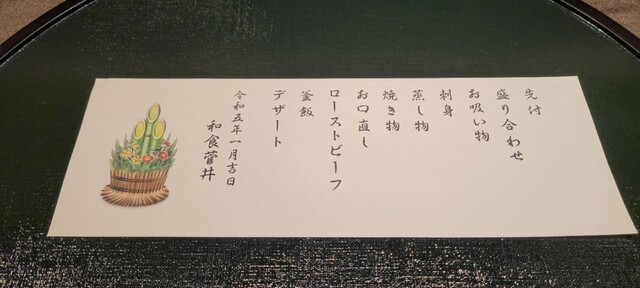 先付
盛り合わせ
お吸い物
刺身
蒸し物
焼き物
お口直し
ローストビーフ
釜飯
デザート
令和五年一月吉日
和食菅井